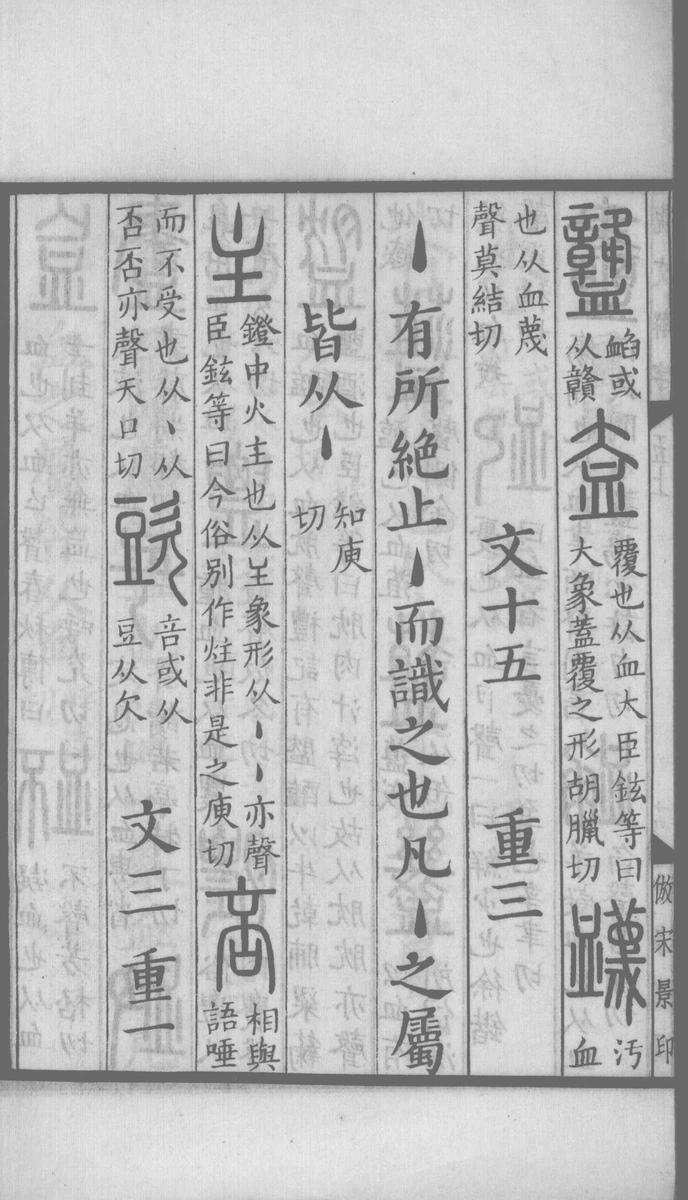 𥃙䘓或从贛 盇覆也从血大臣鉉等曰大象蓋覆之形胡臘切 衊汚血
也从血蔑聲莫結切 文十五 重三
丶有所絶止丶而識之也凡丶之屬
皆从丶知庾切
主鐙中火主也从𡈼象形从丶丶亦聲臣鉉等曰今俗別作炷非是之庾切 咅相與語唾
而不受也从丶从否否亦聲天口切 㰯咅或从豆从欠 文三 重一
倣宋景印